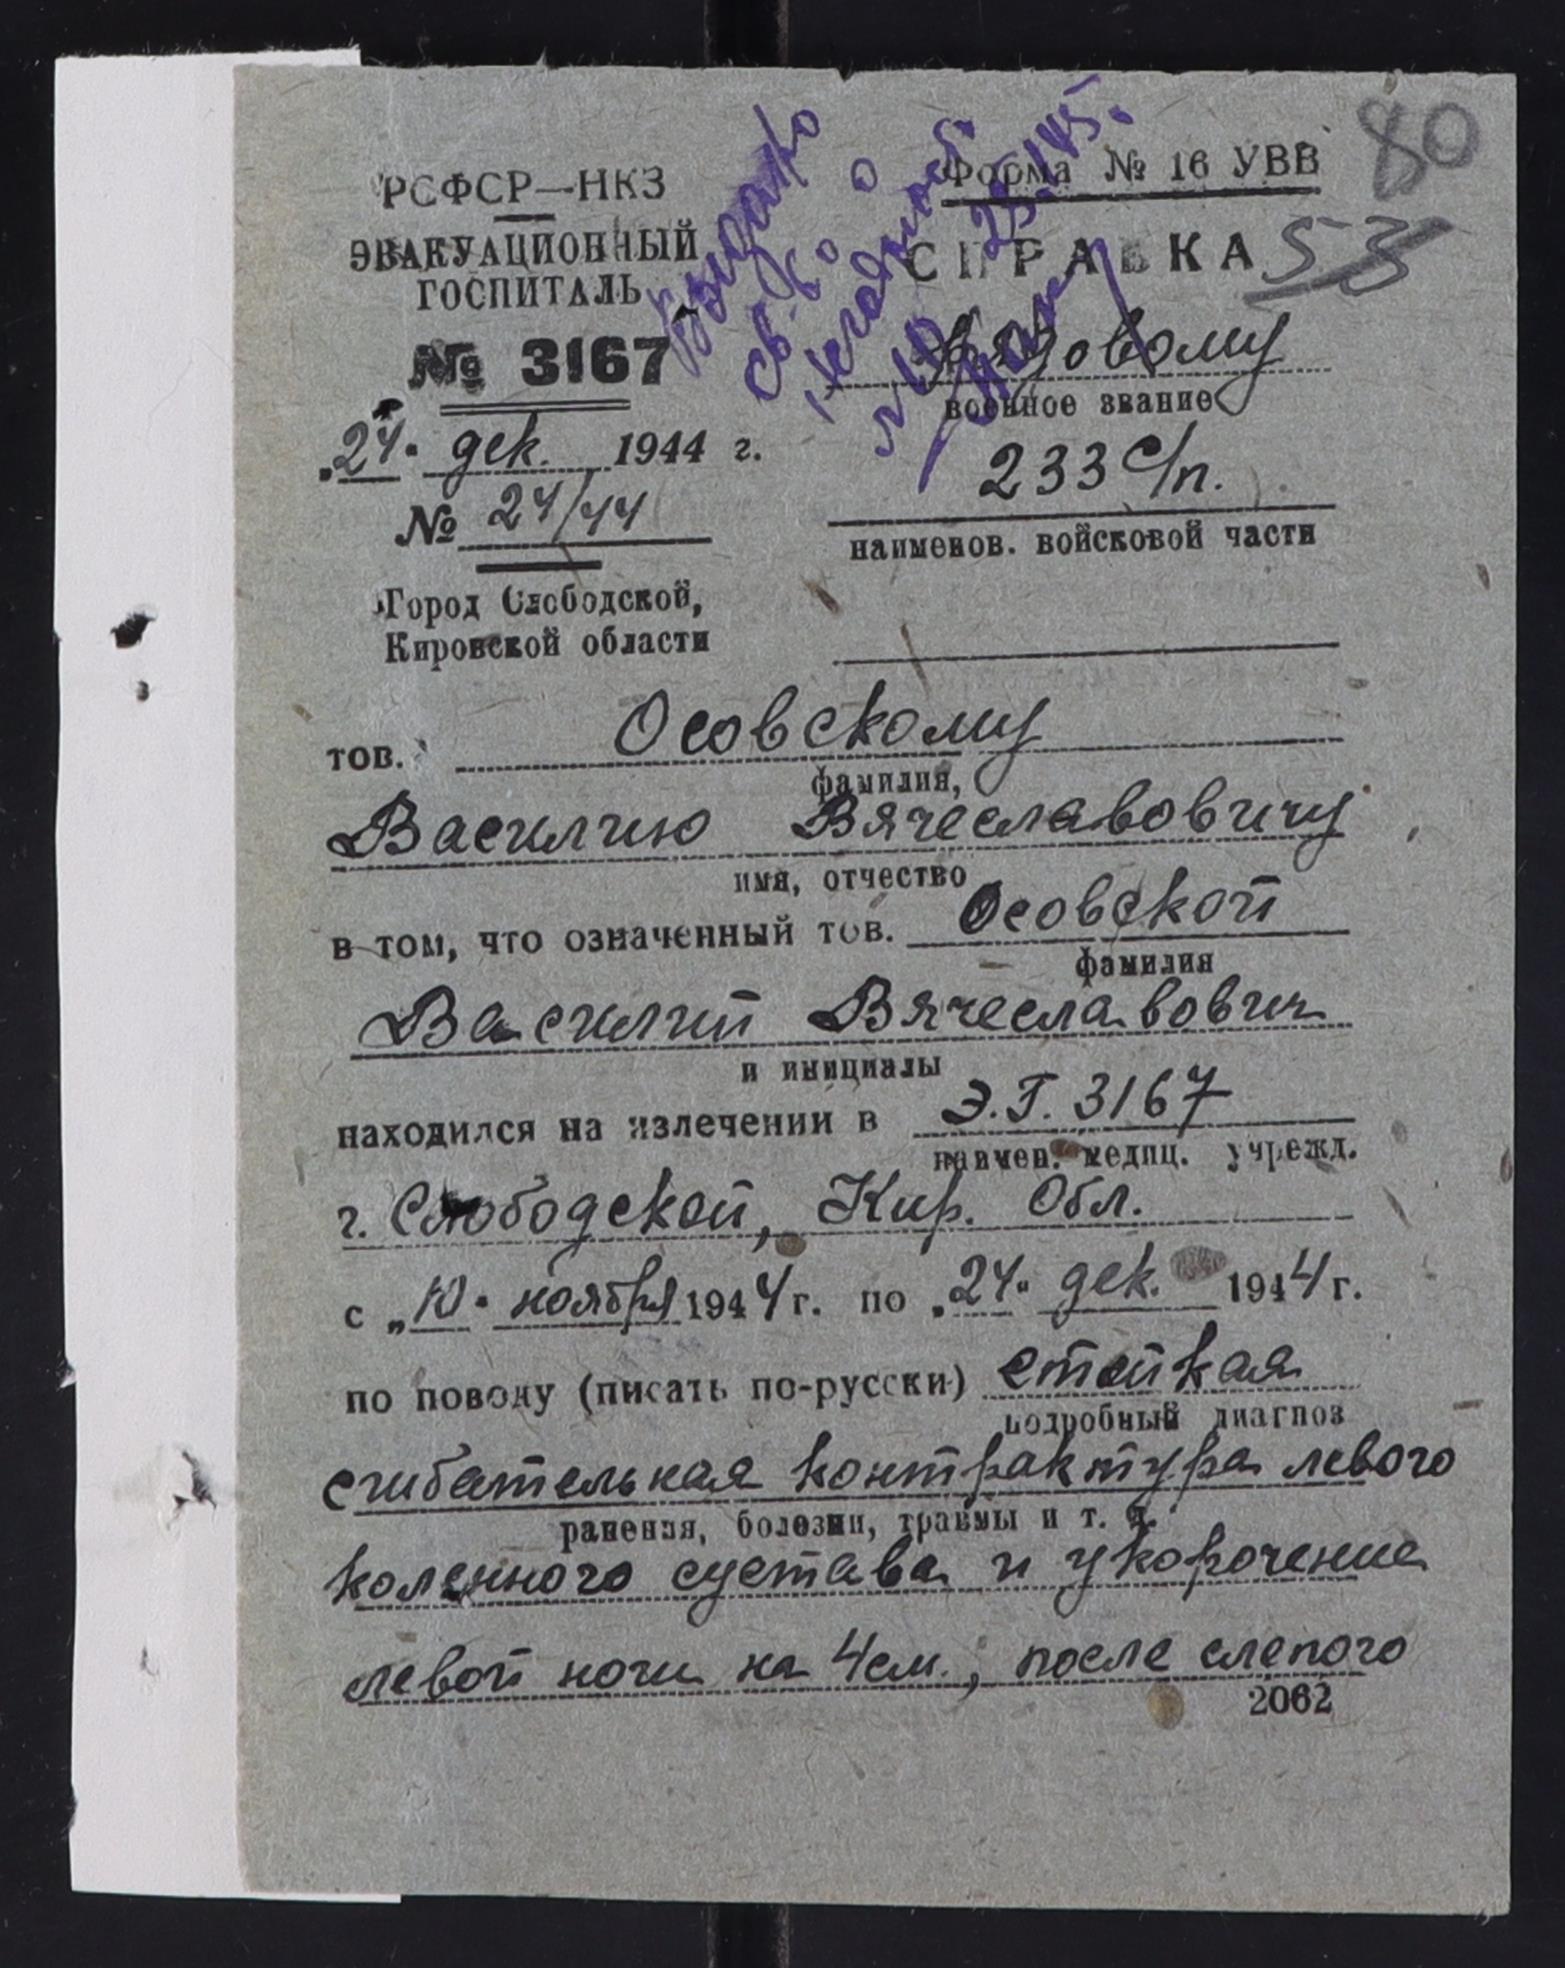 80
РСФСР—НКЗ
ЭВАКУАЦИОННЫЙ
ГОСПИТАЛЬ
№ 3167
"24" дек. 1944 г.
№ 24/44
Город Слободской,
Кировской области
Форма № 16 УВВ
СПРАВКА 53
Выдано
св-во о
негодност.
25
45.
Рядовому
военное звание
233 с/п.
наименов. войсковой части
тов. Осовскому
фамилия,
Василию Вячеславовичу
имя, отчество
в том, что означенный тов. Осовской
фамилия
Василий Вячеславович
и инициалы
находился на излечении в Э.Г. 3167
наимен. медиц. учрежд.
г. Слободской, Кир. Обл.
с „10" ноября 1944 г. по „24" дек. 1944 г.
по поводу (писать по-русски) стойкая
подробный диагноз
сгибательная контрактура левого
ранения, болезни, травмы и т. д.
коленного сустава и укорочение
левой ноги на 4 см., после слепого
2062